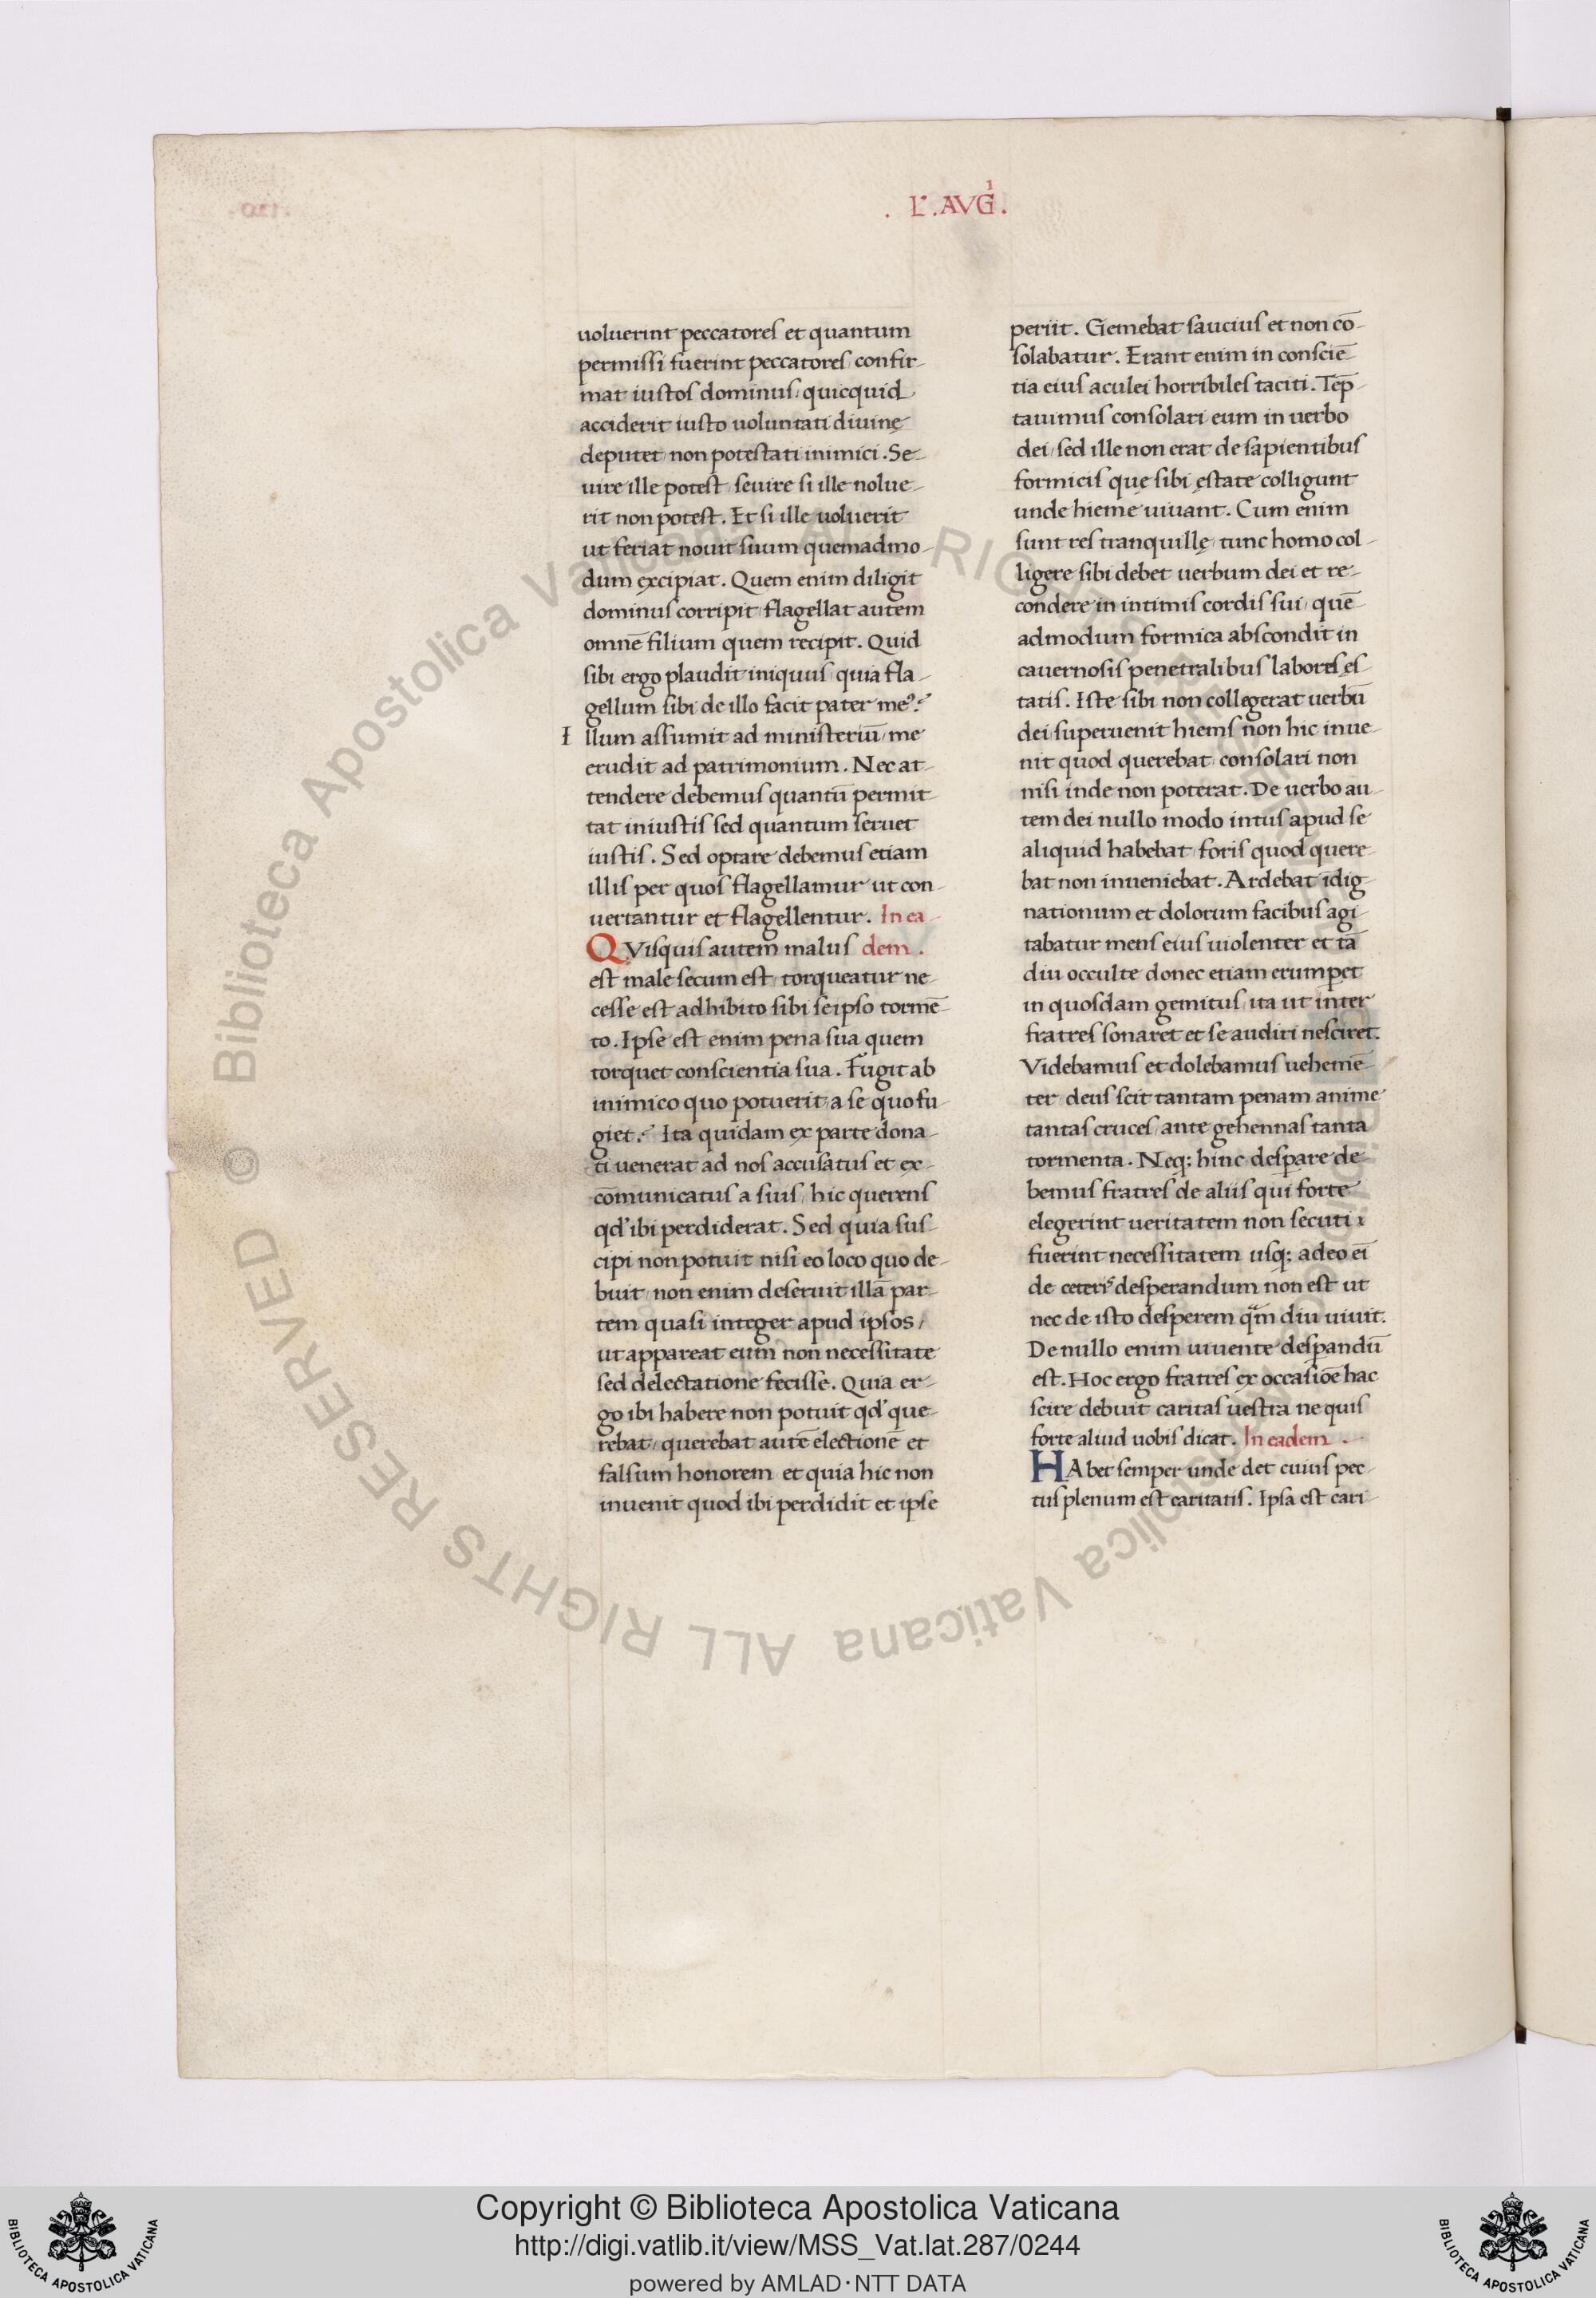 . L'. AVG̅ⁱ.
uoluerint peccatores et quantum
permissi fuerint peccatores, confir-
mat iustos dominus, quicquid
acciderit iusto uoluntati diuinę
deputet, non potestati inimici. Se-
uire ille potest, seuire si ille nolue-
rit non potest. Et si ille uoluerit
ut feriat nouit suum quemadmo-
dum excipiat. Quem enim diligit
dominus corripit, flagellat autem
omnē filium quem recipit. Quid
sibi ergo plaudit iniquus, quia fla-
gellum sibi de illo facit pater meꝰ?
Illum assumit ad ministeriū, me
erudit ad patrimonium. Nec at-
tendere debemus quantū permit-
tat iniustis sed quantum seruet
iustis. Sed optare debemus etiam
illis per quos flagellamur ut con-
uertantur et flagellentur. In ea-
QVisquis autem malus dem.
est male secum est, torqueatur ne-
cesse est adhibito sibi seipso tormē-
to. Ipse est enim pena sua quem
torquet conscientia sua. Fugit ab
inimico quo potuerit, a se quo fu-
giet? Ita quidam ex parte dona-
ti uenerat ad nos accusatus et ex-
cōmunicatus a suis, hic querens
qd' ibi perdiderat. Sed quia sus-
cipi non potuit nisi eo loco quo de-
buit, non enim deseruit illā par-
tem quasi integer apud ipsos,
ut appareat eum non necessitate
sed delectatione fecisse. Quia er-
go ibi habere non potuit qd' que-
rebat, querebat autē electionē et
falsum honorem, et quia hic non
inuenit quod ibi perdidit et ipse
periit. Gemebat saucius et non cō-
solabatur. Erant enim in consciē-
tia eius aculei horribiles taciti. Tēp-
tauimus consolari eum in uerbo
dei, sed ille non erat de sapientibus
formicis quę sibi ęstate colligunt
unde hieme uiuant. Cum enim
sunt res tranquillę, tunc homo col-
ligere sibi debet uerbum dei et re-
condere in intimis cordis sui, quē-
admodum formica abscondit in
cauernosis penetralibus labores ęs-
tatis. Iste sibi non collegerat uerbū
dei, superuenit hiems non hic inue-
nit quod querebat, consolari non
nisi inde non poterat. De uerbo au-
tem dei nullo modo intus apud se
aliquid habebat, foris quod quere-
bat non inueniebat. Ardebat īdig-
nationum et dolorum facibus agi-
tabatur mens eius uiolenter et tā
diu occulte donec etiam erumpet
in quosdam gemitus, ita ut inter
fratres sonaret et se audiri nesciret.
Videbamus et dolebamus uehemē-
ter, deus scit tantam penam anime
tantas cruces, ante gehennas tanta
tormenta. Neq; hinc desp̱are de-
bemus fratres de aliis qui forte
elegerint ueritatem non secuti
fuerint necessitatem usq; adeo eī
de ceteris desperandum non est ut
nec de isto desperem qm̄ diu uiuit.
De nullo enim uiuente desp̱andū
est. Hoc ergo fratres ex occasiōe hac
scire debuit caritas uestra ne quis
forte aliud uobis dicat. In eadem.
HAbet semper unde det cuius pec-
tus plenum est caritatis. Ipsa est cari-
© Biblioteca Apostolica Vaticana ALL RIGHTS RESERVED © Biblioteca Apostolica Vaticana ALL RIGHTS RESERVED
Copyright © Biblioteca Apostolica Vaticana
http://digi.vatlib.it/view/MSS_Vat.lat.287/0244
powered by AMLAD·NTT DATA
BIBLIOTECA APOSTOLICA VATICANA
BIBLIOTECA APOSTOLICA VATICANA